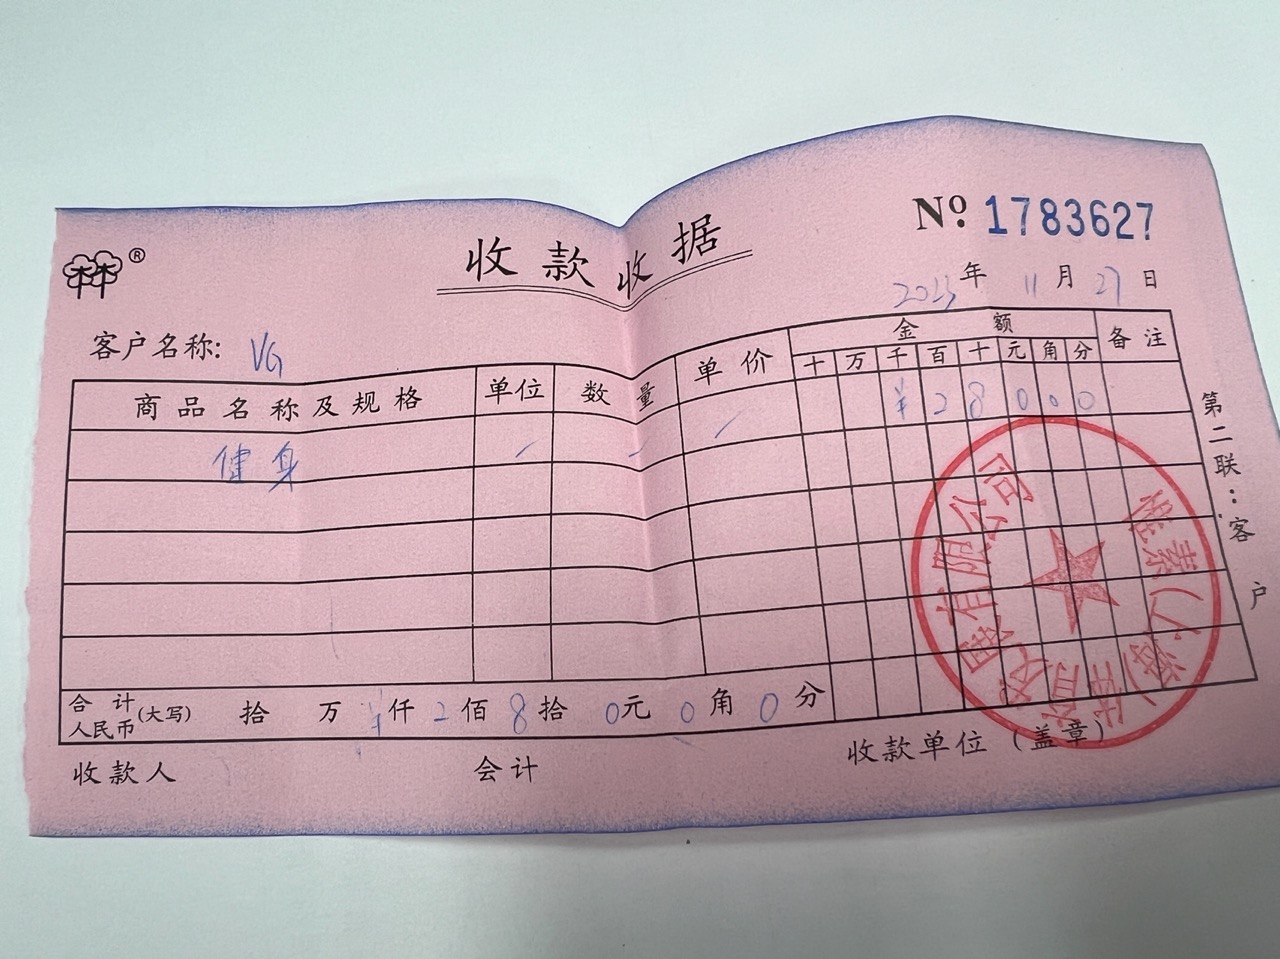 林®
收款收据
No 1783627
2023年 11月 27日
客户名称: VG
商品名称及规格 单位 数量 单价 金额 备注
十 万 千 百 十 元 角 分
健身 ¥ 2 8 0 0 0
合计人民币(大写) 拾 万 ¥仟 2佰 8拾 0元 0角 0分
收款人 会计 收款单位(盖章)
第二联:客户
(上海)体育发展有限公司